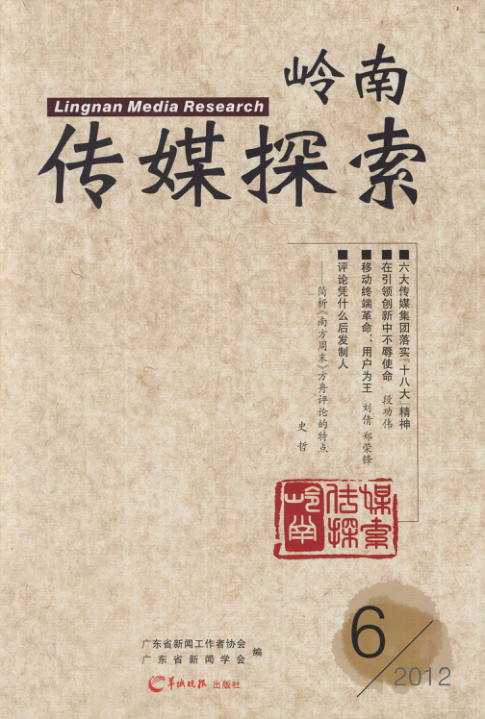 岭南
Lingnan Media Research
传媒探索
■六大传媒集团落实“十八大”精神
■在引领创新中不辱使命 段功伟
■移动终端革命：用户为王 刘倩 郑荣锋
■评论凭什么后发制人
——简析《南方周末》方舟评论的特点
史哲
岭南传媒探索
6
2012
广东省新闻工作者协会
广东省新闻学会
编
羊城晚报出版社